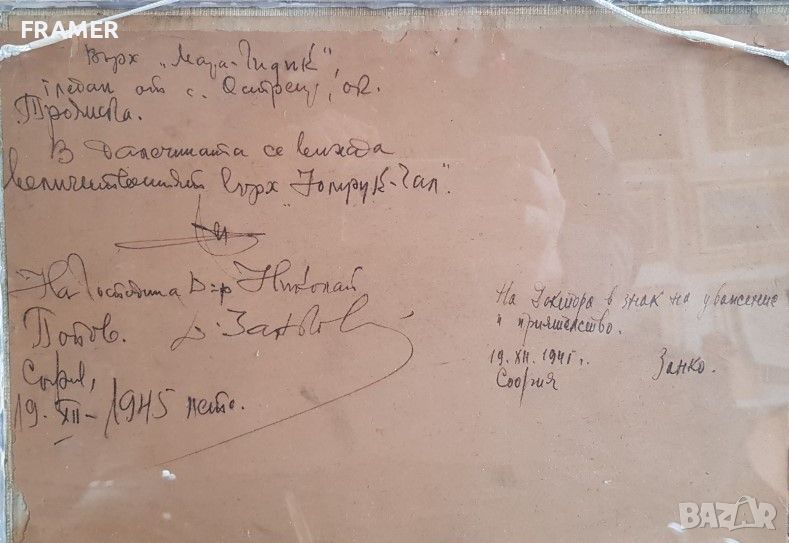 FRAMER
Връх „Мара-Гидик",
гледан от с. Острец, ок.
Троянска.
В далечината се вижда
величественият връх „Юмрук-Чал".
На Господина Д-р Николай
Попов.
София,
19. XII - 1945 лето.
На Доктора в знак на уважение
и приятелство.
19. XII. 1945 г.
София
Занко.
BAZAR